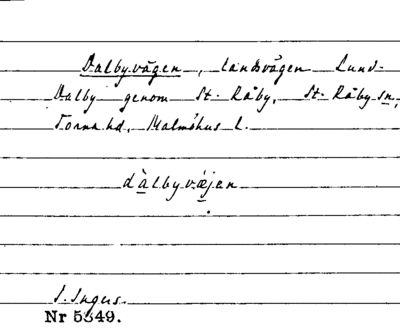 Dalbyvägen, landsvägen Lund-
Dalby genom St. Råby, St. Råby sn,
Torna hd, Malmöhus l.
dàlbyvæjen
I. Ingers.
Nr 5349.